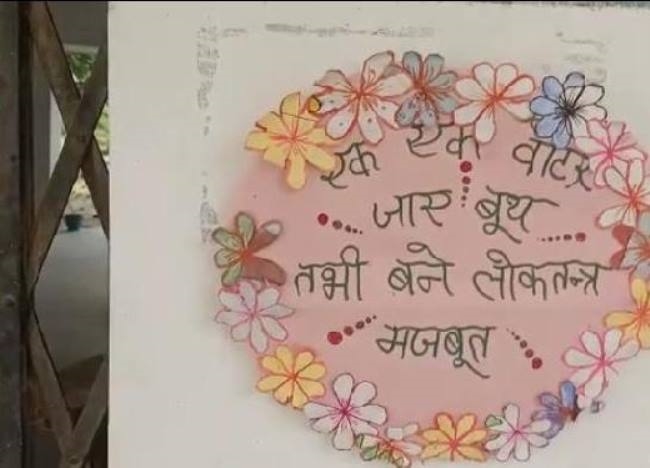 एक एक वोटर
जाए बूथ
तभी बने लोकतन्त्र
मजबूत